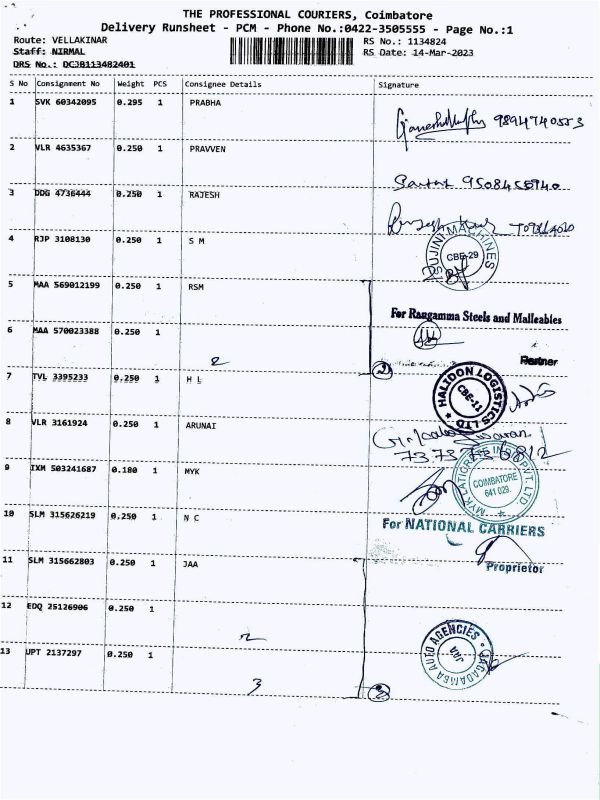 THE PROFESSIONAL COURIERS, Coimbatore
Delivery Runsheet - PCM - Phone No.:0422-3505555 - Page No.:1
Route: VELLAKINAR RS No.: 1134824
Staff: NIRMAL RS Date: 14-Mar-2023
DRS No.: DCJB113482401
S No Consignment No Weight PCS Consignee Details Signature
1 SVK 60342095 0.295 1 PRABHA
9894740553
2 VLR 4635367 0.250 1 PRAVVEN
9508458940
3 DDG 4736444 0.250 1 RAJESH
4 RJP 3108130 0.250 1 S M
SUJINI MACHINES
CBE-29
5 MAA 569012199 0.250 1 RSM
For Rangamma Steels and Malleables
6 MAA 570023388 0.250 1
2
Partner
2
7 TVL 3395233 0.250 1 H L
HALIDON LOGISTICS LTD
CBE-11
8 VLR 3161924 0.250 1 ARUNAI
7373736812
9 IXM 503241687 0.180 1 MYK
COIMBATORE
641 029.
PVT. LTD
10 SLM 315626219 0.250 1 N C
For NATIONAL CARRIERS
Proprietor
11 SLM 315662803 0.250 1 JAA
12 EDQ 25126906 0.250 1
2
13 UPT 2137297 0.250 1
JAGADAMBA AUTO AGENCIES
JAA
3